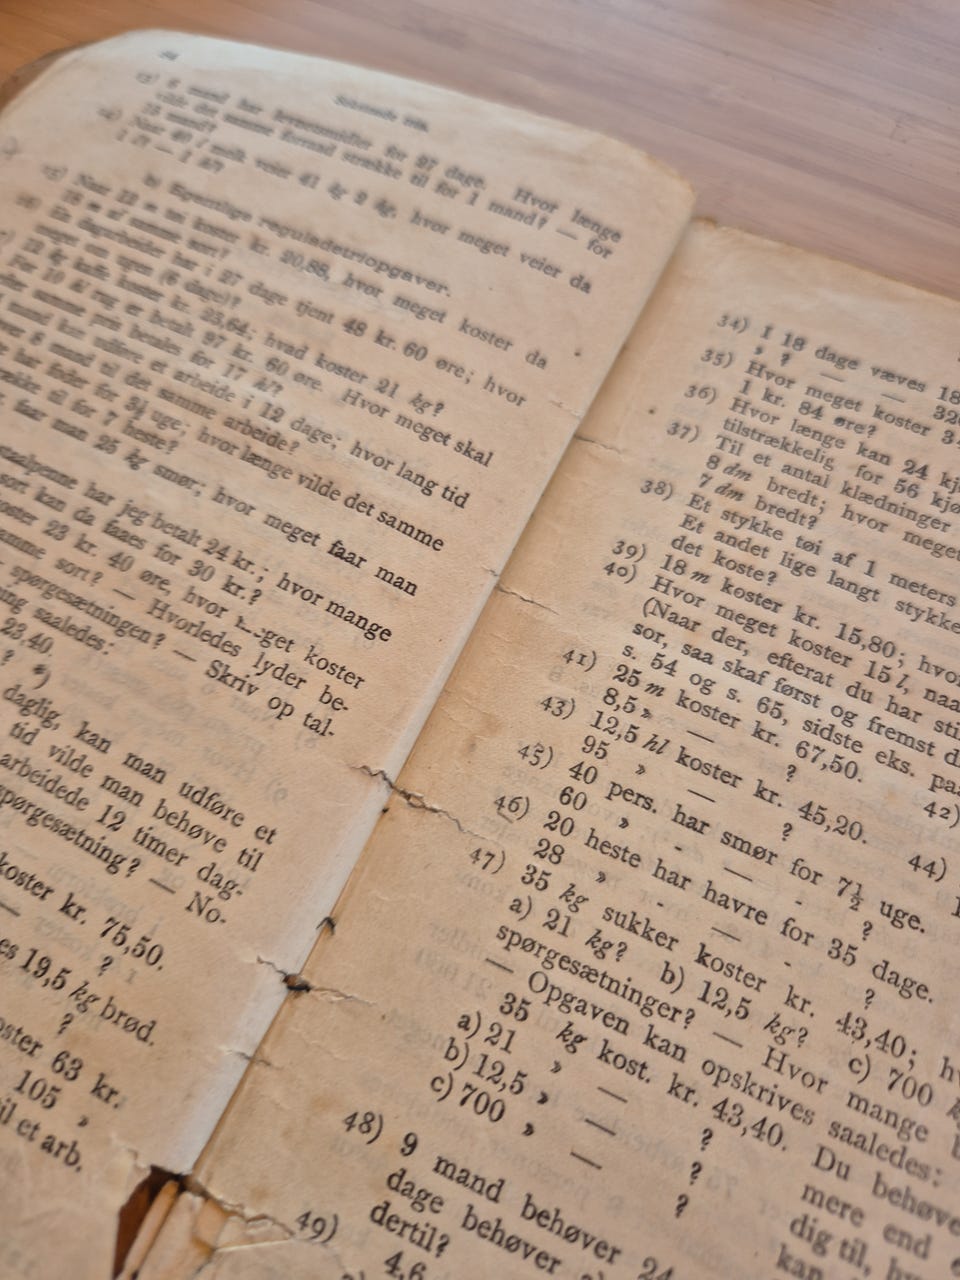 6 mand har levnetsmidler for 27 dage. Hvor længe
vilde det samme forraad strække til for 1 mand? — for
18 mand?
Naar 40 l melk veier 41 kg 2 hg, hvor meget veier da
1 l? — 1 hl?
b) Egentlige reguladetriopgaver.
Naar 12 m tøi koster kr. 20,88, hvor meget koster da
16 m af samme sort?
En dagarbeider har i 27 dage tjent 48 kr. 60 øre; hvor
meget om ugen (6 dage)?
12 kg kaffe koster kr. 23,64; hvad koster 21 kg?
For 10 hl rug er betalt 97 kr. 60 øre. Hvor meget skal
samme pris betales for 17 hl?
mand kan udføre et arbeide i 12 dage; hvor lang tid
8 mand til det samme arbeide?
har foder for 3½ uge; hvor længe vilde det samme
række til for 7 heste?
faar man 25 kg smør; hvor meget faar man
staalpenne har jeg betalt 24 kr.; hvor mange
sort kan da faaes for 30 kr.?
koster 23 kr. 40 øre, hvor meget koster
samme sort? — Hvorledes lyder be-
spørgesætningen? — Skriv op tal-
ning saaledes:
23,40.
? *)
daglig, kan man udføre et
tid vilde man behøve til
arbeidede 12 timer dag-
spørgesætning? — No-
koster kr. 75,50.
— ?
19,5 kg brød.
?
koster 63 kr.
105 »
til et arb.
34) I 18 dage væves 18
» ? — — 32
35) Hvor meget koster 3
1 kr. 84 øre?
36) Hvor længe kan 24 kj
tilstrækkelig for 56 kjø
37) Til et antal klædninger
8 dm bredt; hvor meget
7 dm bredt?
38) Et stykke tøi af 1 meters
Et andet lige langt stykke
det koste?
39) 18 m koster kr. 15,80; hvo
40) Hvor meget koster 15 l, naa
(Naar der, efterat du har sti
sor, saa skaf først og fremst d
s. 54 og s. 65, sidste eks. paa
41) 25 m koster kr. 67,50. 42)
8,5 » — ?
43) 12,5 hl koster kr. 45,20. 44)
95 » — ?
45) 40 pers. har smør for 7½ uge.
60 » - — - ?
46) 20 heste har havre for 35 dage.
28 » - — - ?
47) 35 kg sukker koster kr. 43,40; h
a) 21 kg? b) 12,5 kg? c) 700 k
spørgesætninger? — Hvor mange b
— Opgaven kan opskrives saaledes:
35 kg kost. kr. 43,40. Du behøve
a) 21 » — ? mere end
b) 12,5 » — ? dig til,
c) 700 » — ? kan
48) 9 mand behøver 24
dage behøver
dertil?
49) 4,6